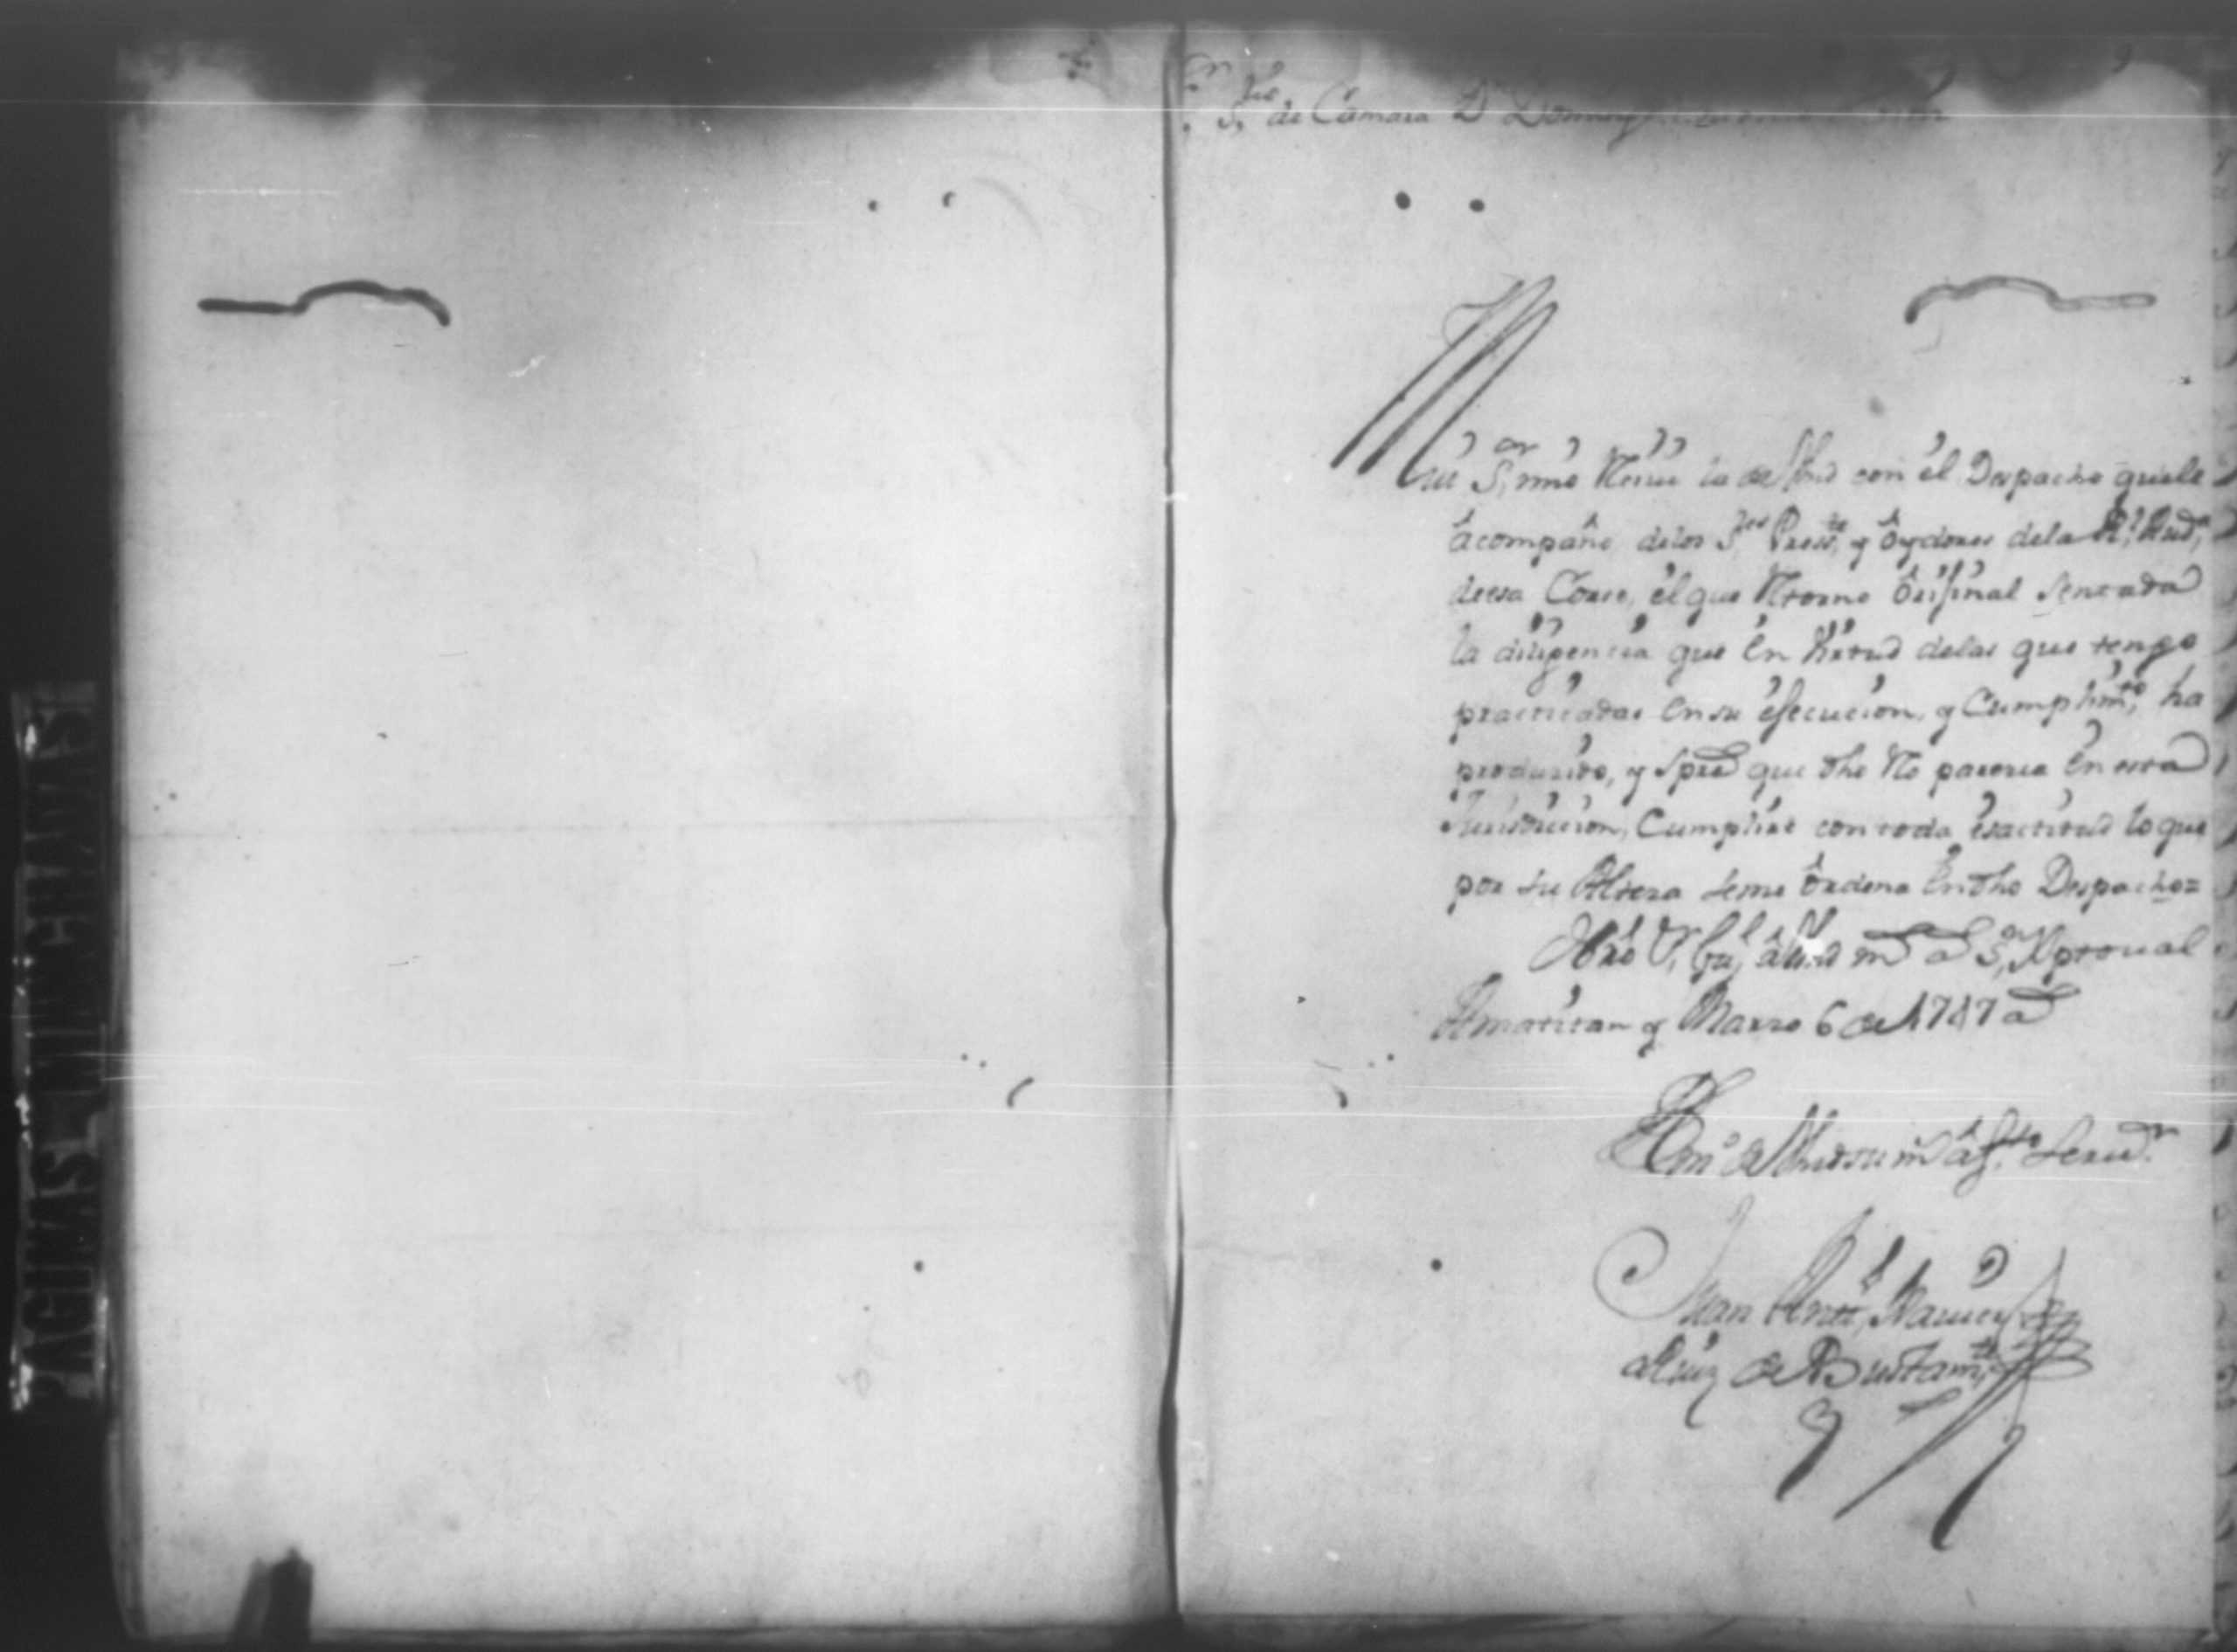 S.rio de Camara D.n Domingo
Mui S.or mio Reciui la de Vmd con el Despacho que le
acompaño, delos S.res Press.te y Oydores dela R.l Aud.a
deesa Corte, el que Retorno Original Sentada
la diligencia que En Virtud delas que tengo
practicadas En su ejecucion, y Cumplim.to ha
producido, y spre que dho No paresca En esta
Jurisdicion, Cumplire con toda esactitud lo que
por su Alteza seme ordena En dho Despacho=
Nro S.r gu.e a Vmd m.s a.s S.n Xptoual
Amatitan y Marzo 6 de 1747 a.s
BLm.o de Vmd su m.s af.to Seru.r
Juan Ant.o
Ruiz de Bustam.te
PAGINAS